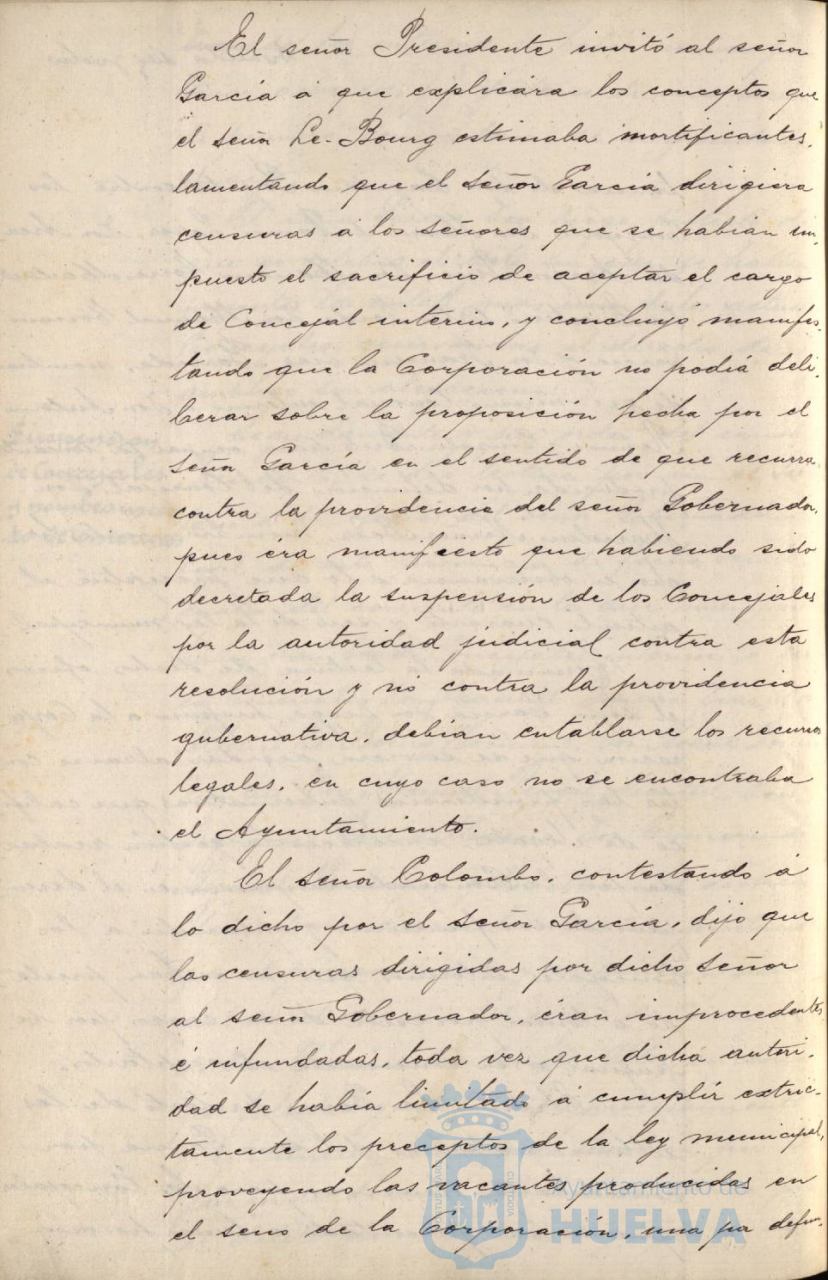 El señor Presidente invitó al señor
García á que explicára los conceptos que
el señor Le-Bourg estimaba mortificantes,
lamentando que el señor García dirigiera
censuras á los señores que se habían im-
puesto el sacrificio de aceptar el cargo
de Concejál interino, y concluyó manifes-
tando que la Corporación no podiá deli-
berar sobre la proposición hecha por el
señor García en el sentido de que recurra
contra la providencia del señor Gobernador,
pues éra manifiesto que habiendo sido
decretada la suspensión de los Concejales
por la autoridad judicial contra esta
resolución y nó contra la providencia
gubernativa, debían entablarse los recursos
legales, en cuyo caso no se encontraba
el Ayuntamiento.
El señor Colombo, contestando á
lo dicho por el señor García, dijo que
las censuras dirigidas por dicho señor
al señor Gobernador, éran improcedentes
é infundadas, toda vez que dicha autori-
dad se había limitado á cumplir extric-
tamente los preceptos de la ley municipal,
proveyendo las vacantes producidas en
el seno de la Corporación, una pa defun-
Ayuntamiento de
HUELVA